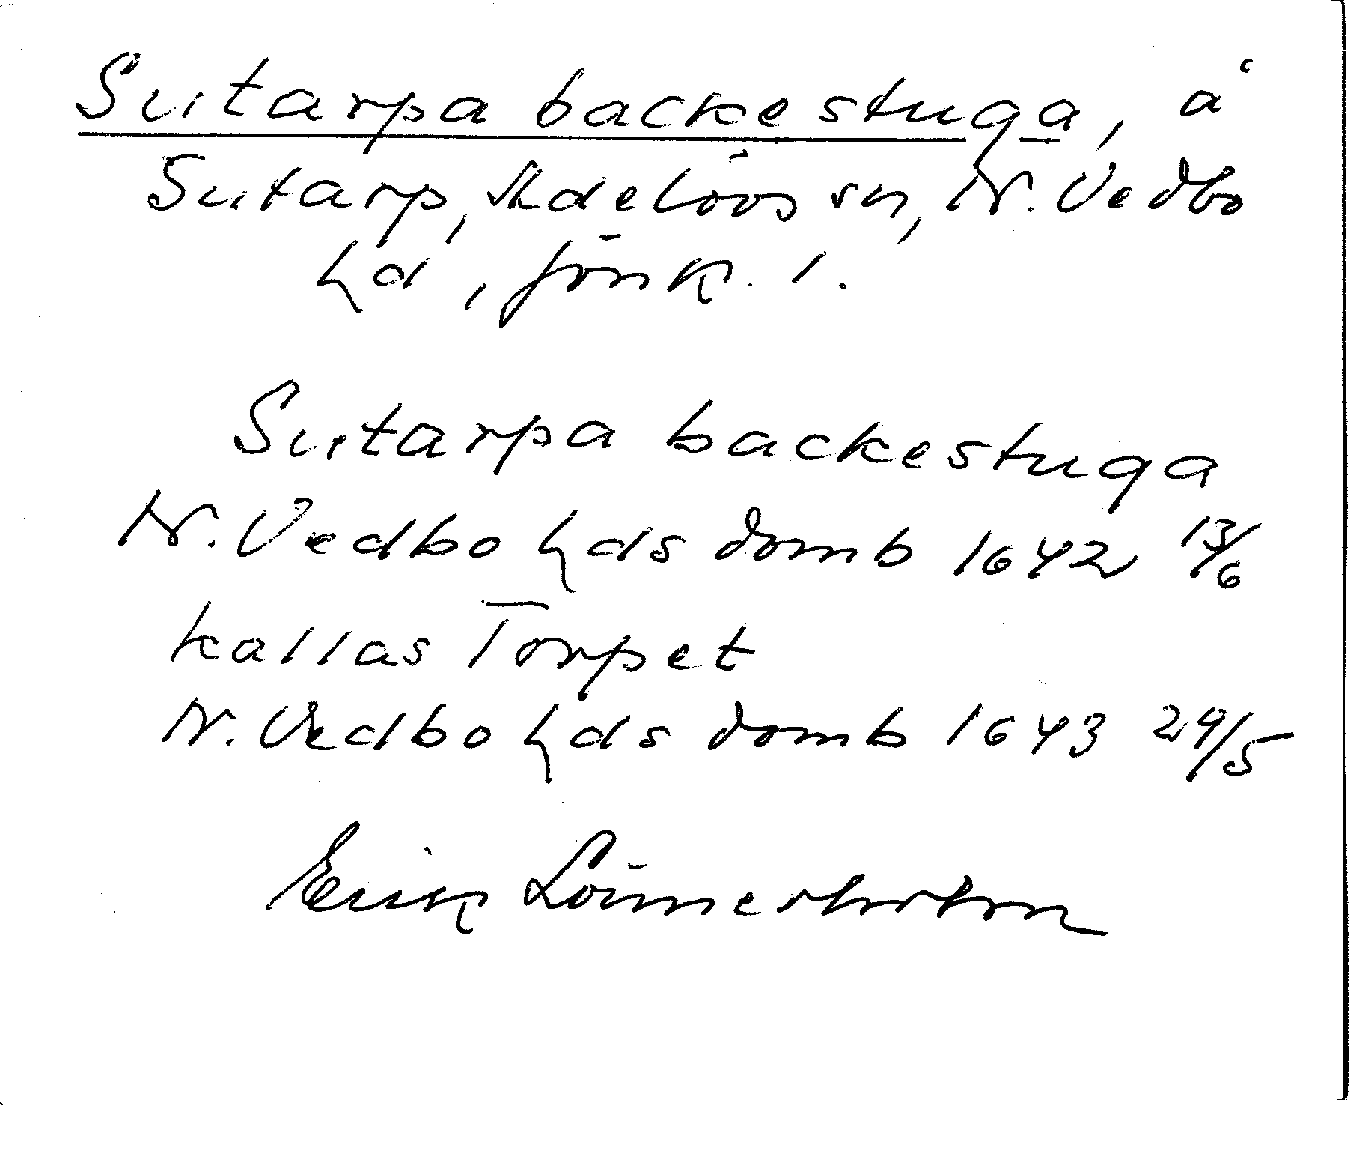 Sutarpa backestuga, å
Sutarp, Adelövs sn, N. Vedbo
hd, Jönk. l.
Sutarpa backestuga
N. Vedbo hds domb 1642 13/6
kallas Torpet
N. Vedbo hds domb 1643 29/5
Erik Lönnerholm